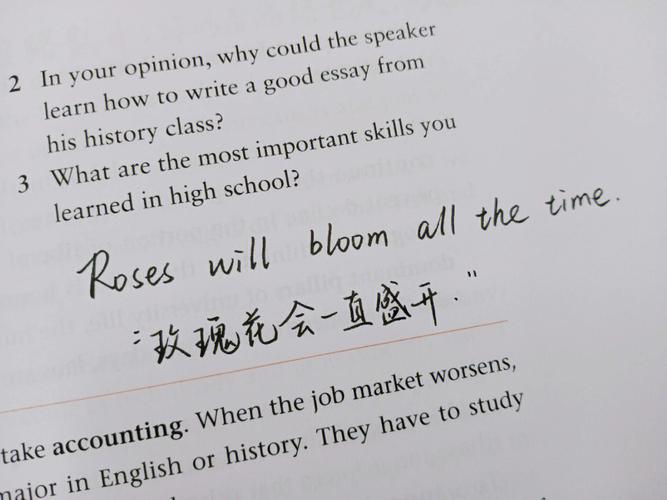 2 In your opinion, why could the speaker
learn how to write a good essay from
his history class?
3 What are the most important skills you
learned in high school?
Roses will bloom all the time.
“玫瑰花会一直盛开.”
take accounting. When the job market worsens,
major in English or history. They have to study